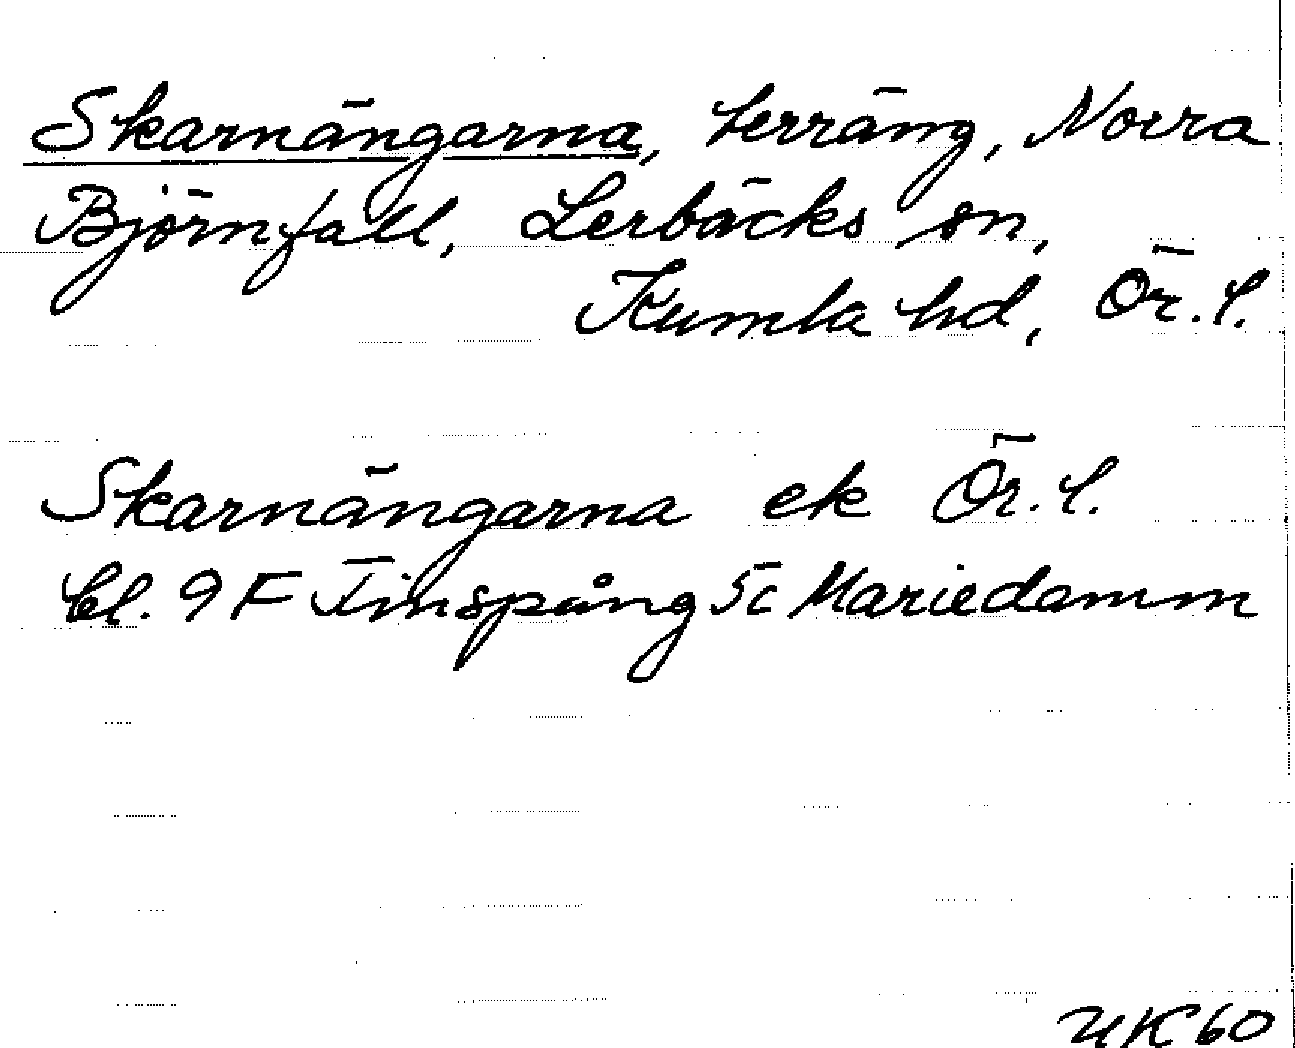 Skarnängarna, terräng, Norra
Björnfall, Lerbäcks sn,
Kumla hd, Ör. l.
Skarnängarna ek Ör. l.
bl. 9 F Finspång 5c Mariedamm
UK 60